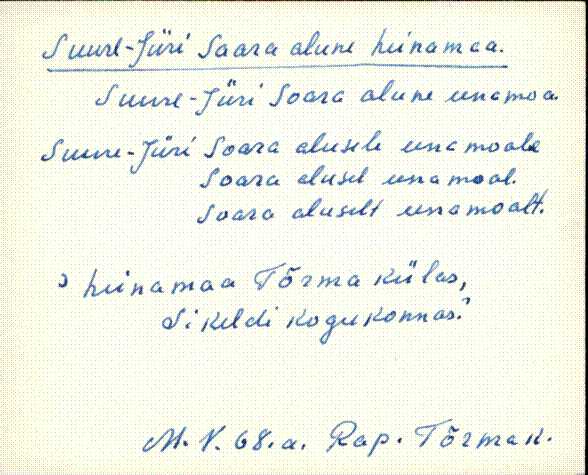 Suure-Jüri Saara alune heinamaa.
Suure-Jüri Soara alune einamoa
Suure-Jüri Soara alusele einamoale
Soara alusel einamoal.
Soara aluselt einamoalt.
heinamaa Tõrma külas,
Sikeldi kogukonnas.
M. V. 68.a. Rap. Tõrma k.